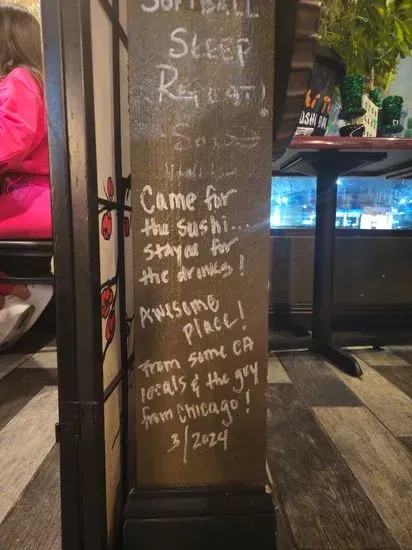 SOFTBALL
SLEEP
REPEAT!
Came for
the sushi...
stayed for
the drinks!
Awesome
place!
From some CA
locals & the guy
from Chicago!
3/2024